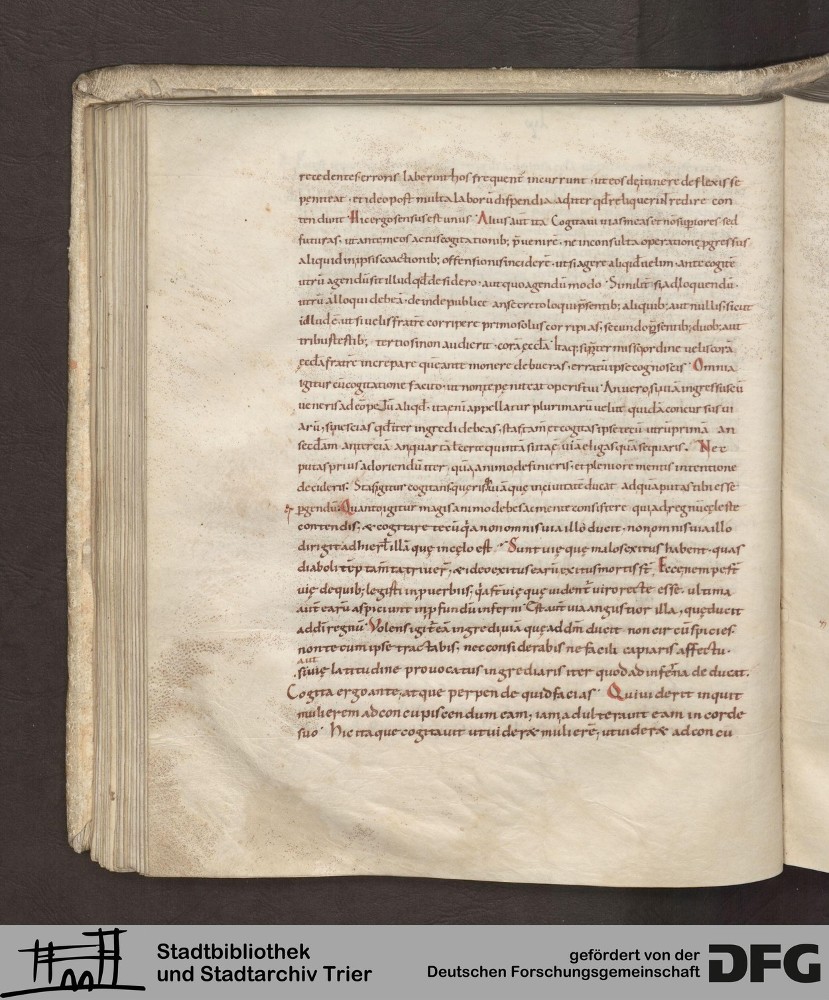 recedentes erroris laberinthos frequent incurrunt · ut eos de itinere deflexisse
peniteat · et ideo post multa laborū dispendia aditer qd reliquerint redire con
tendunt Hic ergo sensus est unus · Alius aut ita Cogitaui uias meas et non supiores sed
futuras · ut ante meos actus cogitationib; puenire · ne inconsulta operatione pgressus
aliquid in ipsis coactionib; offensionis inciderē · ut si agere aliquid uelim · ante cogitē
utrū agendū sit illud qd desidero · aut quo agendū modo · Similit si ad loquendū ·
utrū alloqui debeā · deinde publice an secreto loqui psentib; aliquib; aut nullis · sicut
illud ē · ut si uelis fratrē corripere primo solus corripias · secundo psentib; duob; aut
tribus testib; tertio si non audierit · corā ęccła Itaq; supter misse ordine uelis corā
ęccła fratrē increpare que ante monere debueras · erratū ipse cognoscis · Omnia
igitur cū cogitatione facito · ut non te peniteat operis tui · An uero si uiā ingressus eū
ueneris ad cōpetū aliqd · ita eni appellatur plurimarū uelut quidā concursus ui
arū · si nescias qd iter ingredi debeas · stas tam et cogitas ipse tecū utrū primā an
secdam an terciā an quartā l certe quintā sitiac uiā eligas quā sequaris · Nec
putas prius adoriendū iter · quā animo definieris · et pleniore mentis intentione
decideris · Stas igitur cogitans queris quā uiā quę in ciuitatē ducat ad quā putas tibi esse
pgendū · Quanto igitur magis animo debes ac mente consistere qui ad regnū cęleste
contendis; & cogitare tecū qa non omnis uia illo ducit · non omnis uia illo
dirigit ad hierł illā quę in cęlo est · Sunt uię quę malos exitus habent · quas
diaboli tēptam ta triuer; & ideo exitus earū exitus mortis st̄ Ecce nempe st̄
uię de quib; legisti in puerbiis; qa st̄ uię quę uident uiro recte esse · ultima
aut earū aspiciunt in pfundū inferni Est aut uia angustior illa · quę ducit
ad di regnū · Volens igit eā ingredi uiā quę ad dm̄ ducit · non circūspicies ·
non tecum ipse tractabis; nec considerabis ne facili capiaris affectu ·
aut
siuię latitudine prouocatus ingrediaris iter quod ad infer̄na deducat ·
Cogita ergo ante; atque perpende quid facias · Qui uiderit inquit
mulierem ad concupiscendum eam; iam adulterauit eam in corde
suo · Hic itaque cogitauit ut uideræ mulierē; ut uideræ ad concu
Stadtbibliothek
und Stadtarchiv Trier
gefördert von der
Deutschen Forschungsgemeinschaft
DFG